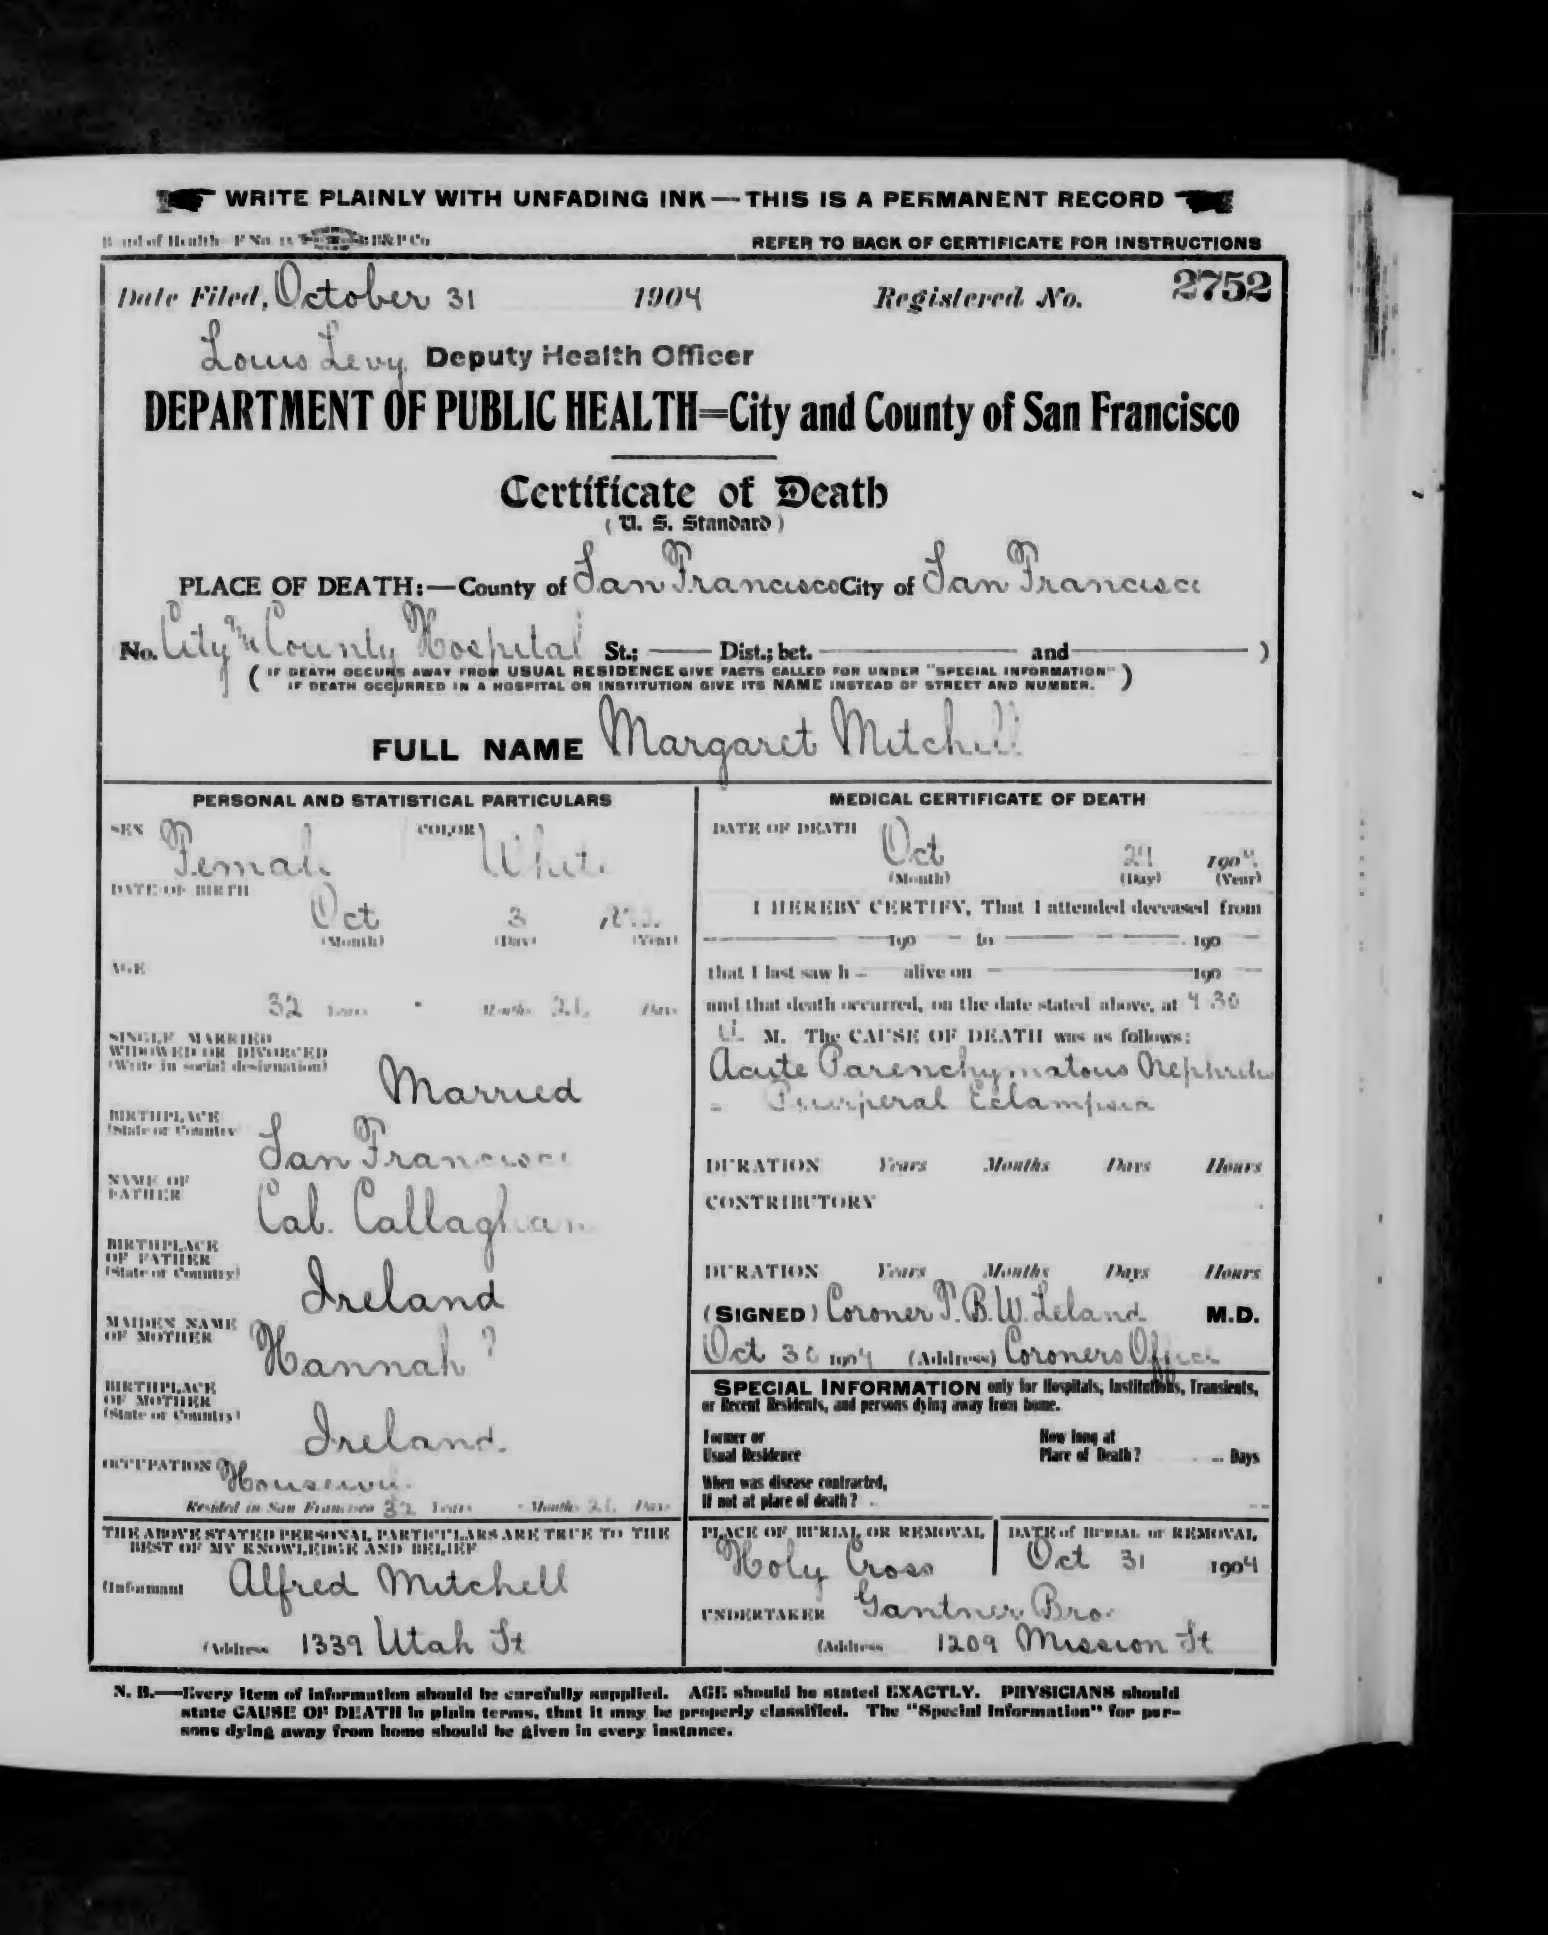 WRITE PLAINLY WITH UNFADING INK—THIS IS A PERMANENT RECORD
Board of Health—F No. B&P Co
REFER TO BACK OF CERTIFICATE FOR INSTRUCTIONS
Date Filed, October 31 1904 Registered No. 2752
Louis Levy Deputy Health Officer
DEPARTMENT OF PUBLIC HEALTH=City and County of San Francisco
Certificate of Death
(U. S. Standard)
PLACE OF DEATH:—County of San Francisco City of San Francisco
No. City and County Hospital St.; —— Dist.; bet. —— and —— )
( IF DEATH OCCURS AWAY FROM USUAL RESIDENCE GIVE FACTS CALLED FOR UNDER "SPECIAL INFORMATION" )
IF DEATH OCCURRED IN A HOSPITAL OR INSTITUTION GIVE ITS NAME INSTEAD OF STREET AND NUMBER.
FULL NAME Margaret Mitchell
PERSONAL AND STATISTICAL PARTICULARS
SEX Female COLOR White
DATE OF BIRTH
Oct 3
(Month) (Day) (Year)
AGE
32 Years Months 26 Days
SINGLE MARRIED
WIDOWED OR DIVORCED
(Write in social designation)
Married
BIRTHPLACE
(State or Country
San Francisco
NAME OF
FATHER
Cal. Callaghan
BIRTHPLACE
OF FATHER
(State or Country)
Ireland
MAIDEN NAME
OF MOTHER
Hannah ?
BIRTHPLACE
OF MOTHER
(State or Country)
Ireland
OCCUPATION Housewife
Resided in San Francisco 32 Years - Months 26 Days
THE ABOVE STATED PERSONAL PARTICULARS ARE TRUE TO THE
BEST OF MY KNOWLEDGE AND BELIEF
(Informant Alfred Mitchell
(Address 1339 Utah St
MEDICAL CERTIFICATE OF DEATH
DATE OF DEATH
Oct 29 1904
(Month) (Day) (Year)
I HEREBY CERTIFY, That I attended deceased from
—— 190 — to —— 190 —
that I last saw h — alive on —— 190 —
and that death occurred, on the date stated above, at 4 30
a. M. The CAUSE OF DEATH was as follows:
Acute Parenchymatous Nephritis
- Puerperal Eclampsia
DURATION Years Months Days Hours
CONTRIBUTORY
DURATION Years Months Days Hours
(SIGNED) Coroner T. B. W. Leland M.D.
Oct 30 1904 (Address) Coroners Office
SPECIAL INFORMATION only for Hospitals, Institutions, Transients,
or Recent Residents, and persons dying away from home.
Former or
Usual Residence
How long at
Place of Death? Days
When was disease contracted,
If not at place of death?
PLACE OF BURIAL OR REMOVAL
Holy Cross
DATE of BURIAL or REMOVAL
Oct 31 1904
UNDERTAKER Gantner Bro.
(Address 1209 Mission St
N. B.—Every item of information should be carefully supplied. AGE should be stated EXACTLY. PHYSICIANS should
state CAUSE OF DEATH in plain terms, that it may be properly classified. The "Special Information" for per-
sons dying away from home should be given in every instance.